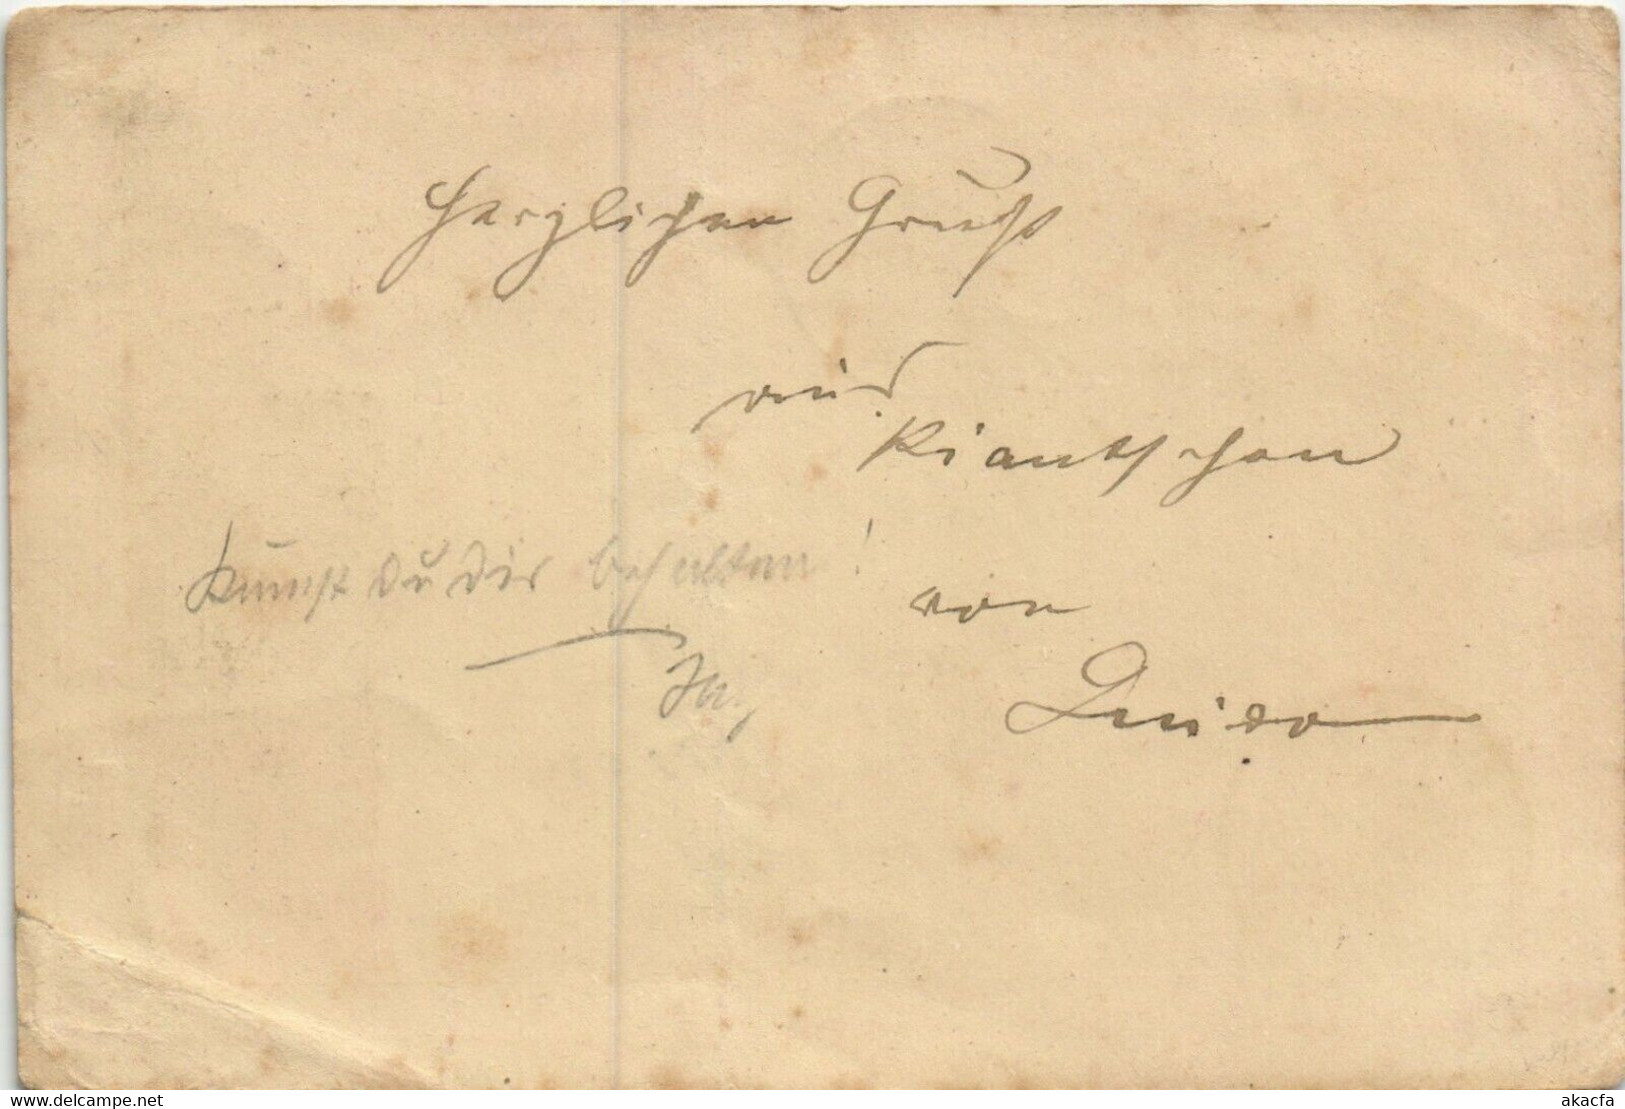 Herzlichen Gruß
aus
Kiautschou
Kannst du dir behalten!
von
Guido
www.delcampe.net
akacfa